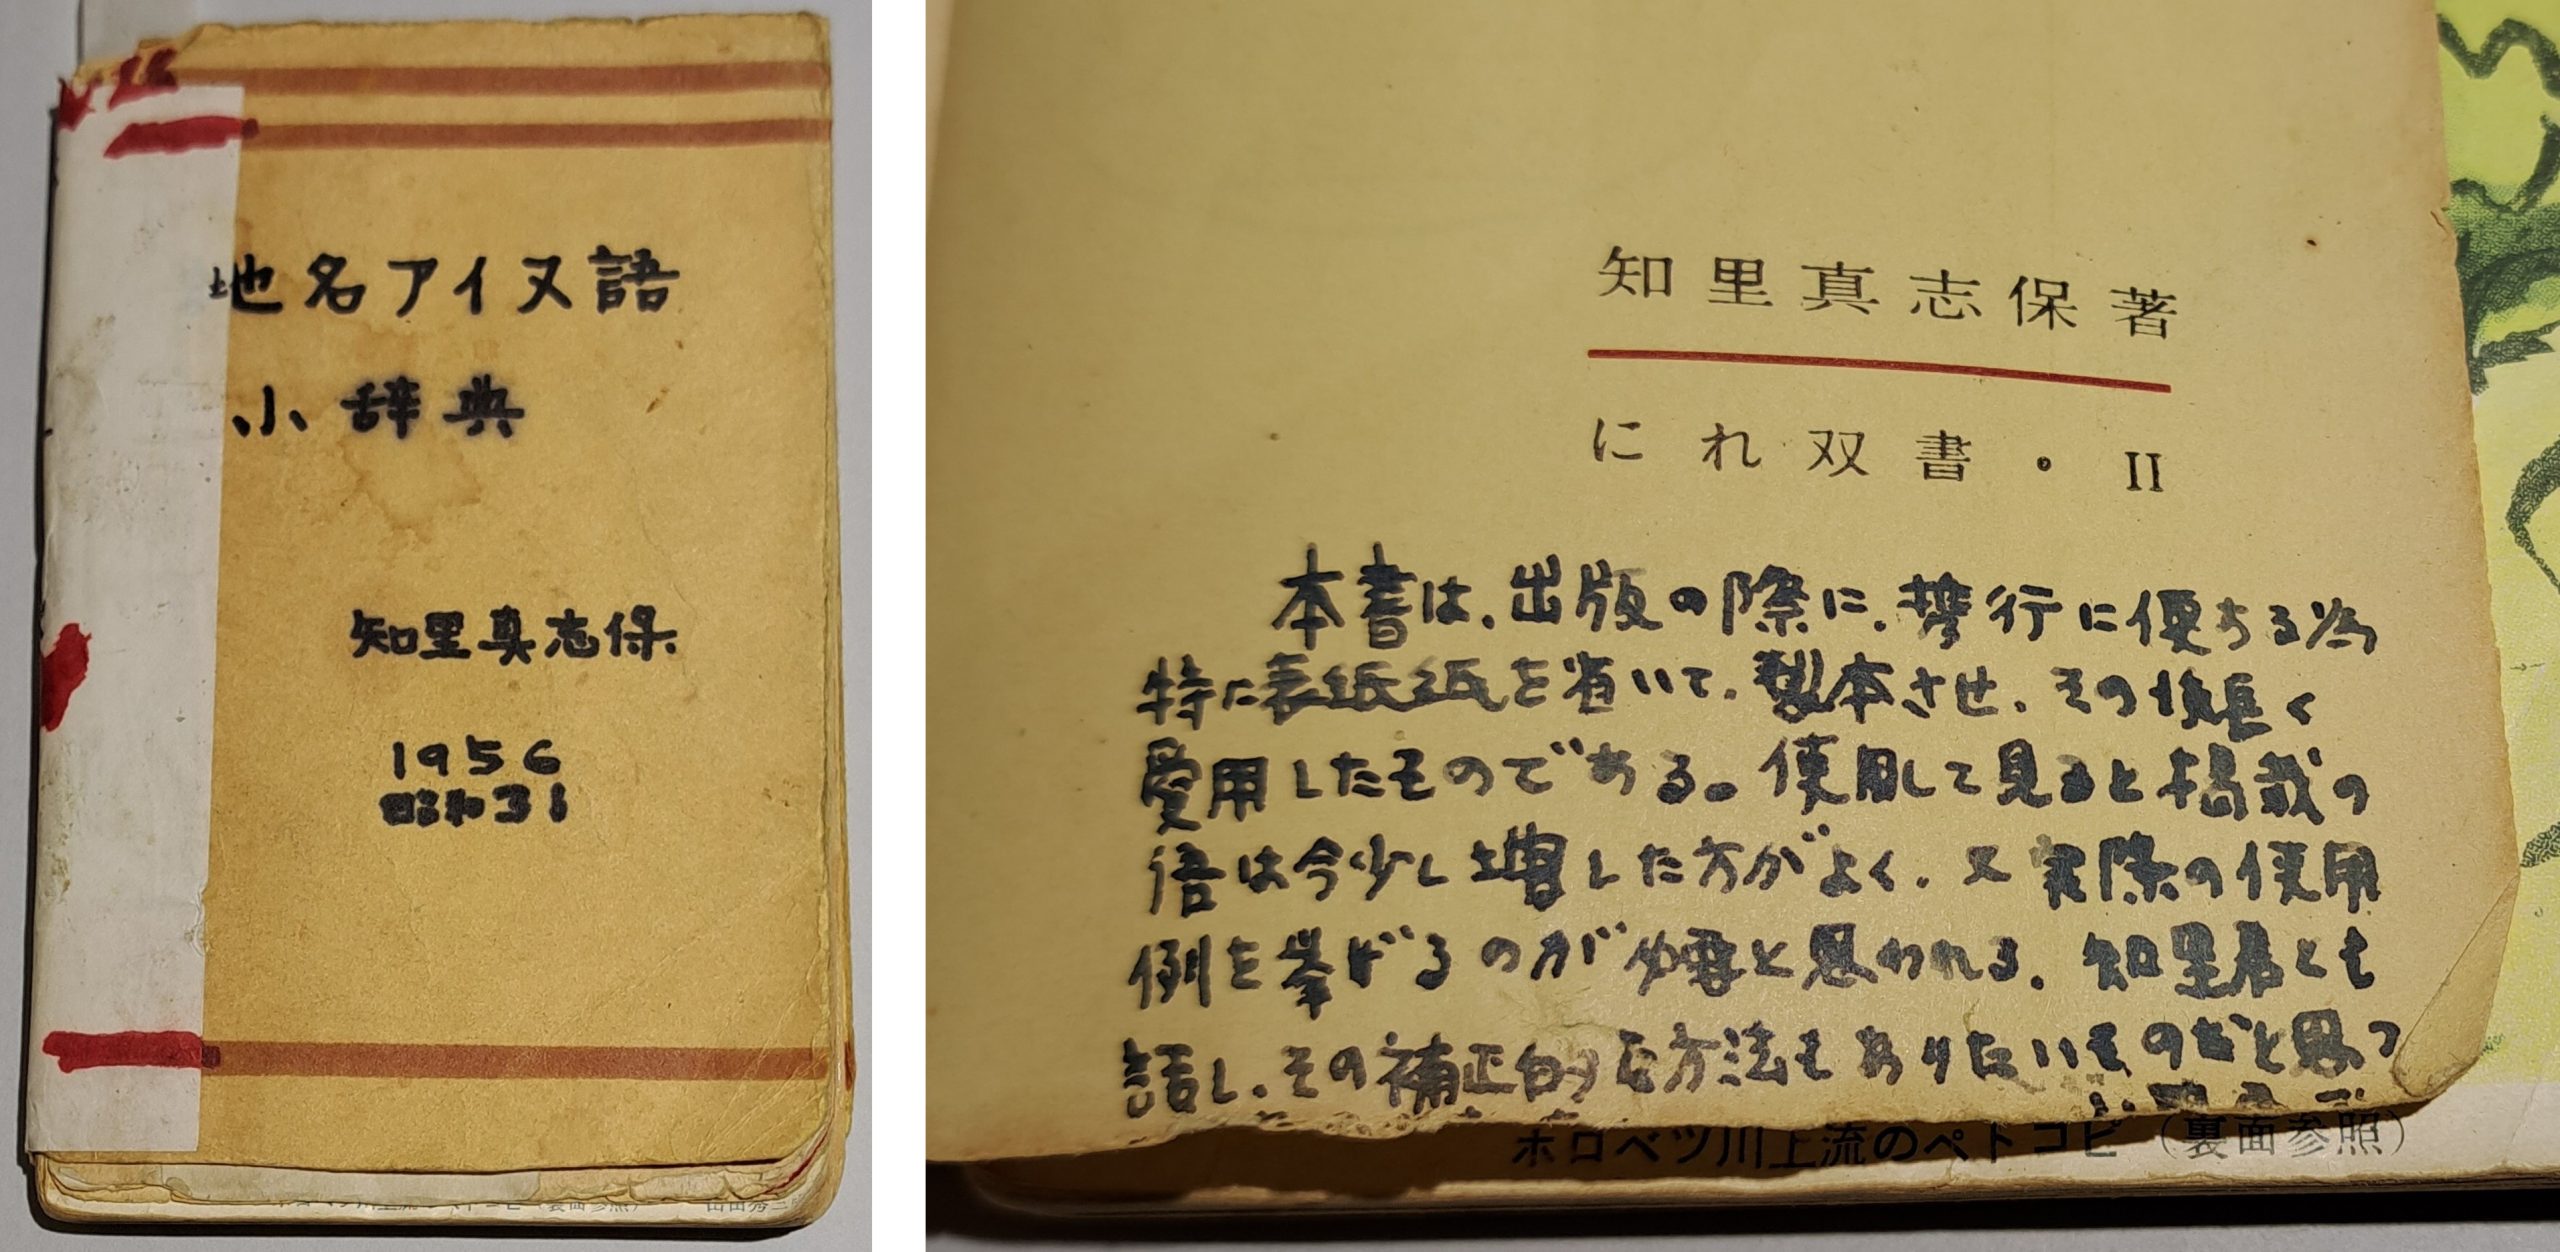 地名アイヌ語
小辞典
知里真志保
1956
昭和31
知里真志保著
にれ双書・II
本書は、出版の際に、携行に便ある為
特に表紙紙を省いて、製本させ、その後長く
愛用したものである。使用して見ると掲載の
語は今少し増した方がよく、又実際の使用
例を挙げるのが必要と思われる。知里君とも
話し、その補正的な方法もありたいものだと思っ
ホロベツ川上流のペトコピ（裏面参照）